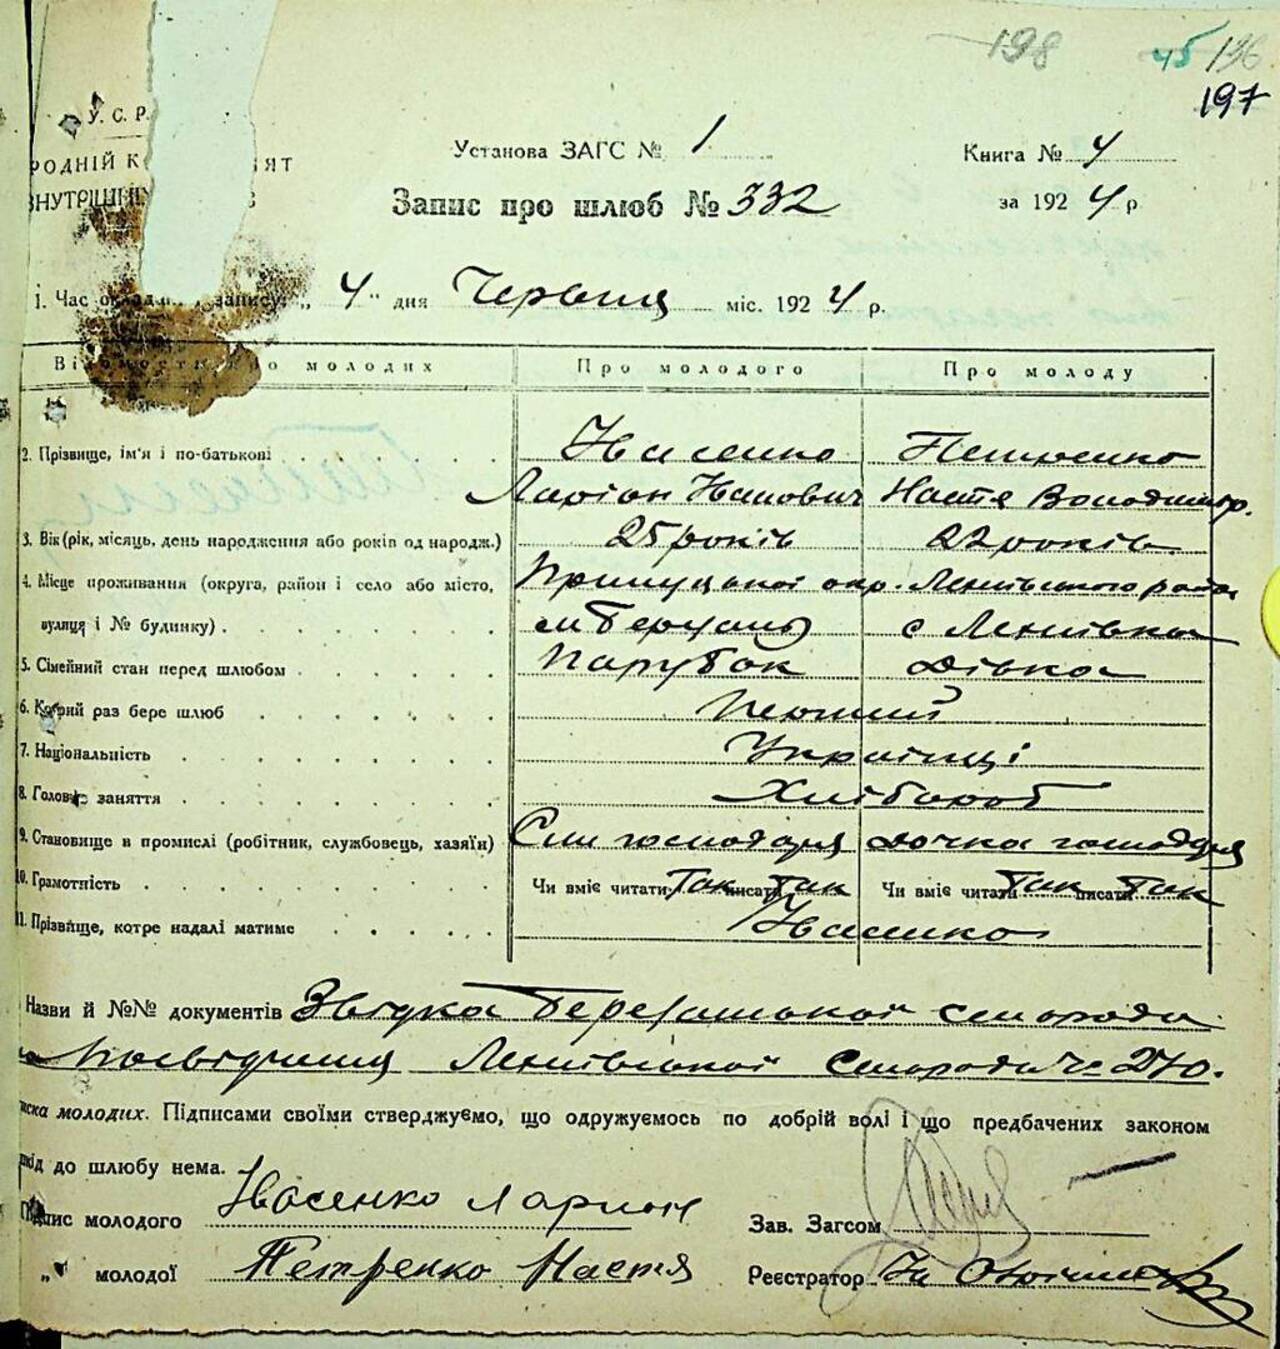 198 45 136
197
У. С. Р.
РОДНІЙ К ЯТ
ВНУТРІШНІ
Установа ЗАГС № 1
Книга № 4
Запис про шлюб № 332
за 192 4 р.
1. Час складання запису: „ 4 " дня Червня міс. 192 4 р.
Відомости про молодих Про молодого Про молоду
2. Прізвище, ім'я і по-батькові Ивасенко Петренко
Ларіон Иванович Настя Володимир.
3. Вік (рік, місяць, день народження або років од народж.) 25 років 22 років
4. Місце проживання (округа, район і село або місто, Прилуцької окр. Ленівського району
вулиця і № будинку) с Ленівка
5. Сімейний стан перед шлюбом Парубок Дівка
6. Котрий раз бере шлюб Перший
7. Національність Українці
8. Головне заняття Хлібороб
9. Становище в промислі (робітник, службовець, хазяїн) Син господаря Дочка господаря
10. Грамотність Чи вміє читати Так писати Так Чи вміє читати Так писати Так
11. Прізвище, котре надалі матиме Ивасенко
Назви й №№ документів Звідка сельради
Посвідчення Ленівської Сельради № 270.
иска молодих. Підписами своїми стверджуємо, що одружуємось по добрій волі і що предбачених законом
код до шлюбу нема.
Підпис молодого Ивасенко Ларион Зав. Загсом
„ молодої Петренко Настя Реєстратор